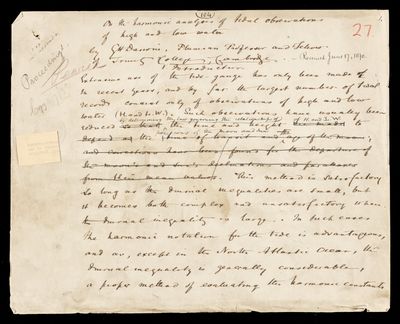 (164)
On the harmonic analysis of tidal observations
of high and low water
27.
by G H Darwin, Plumian Professor and Fellow
of Trinity College, Cambridge. Received June 17, 1890.
Proceedings
Introduction.
Extensive use of the tide-gauge has only been made of
in recent years, and by far the largest number of tidal
records consist only of observations of high and low
water (H and L.W.). Such observations have usually been
reduced by determining the law governing the relationship of the time and height of H and L.W.
to the positions of the moon and sun
the moon's and sun's declination and parallaxes
from their mean values. This method is satisfactory
so long as the diurnal inequalities are small, but
it becomes both complex and unsatisfactory when
the diurnal inequality is large. In such cases
the harmonic notation for the tide is advantageous,
and as, except in the North Atlantic Ocean, the
diurnal inequality is generally considerable,
a proper method of evaluating the harmonic constants